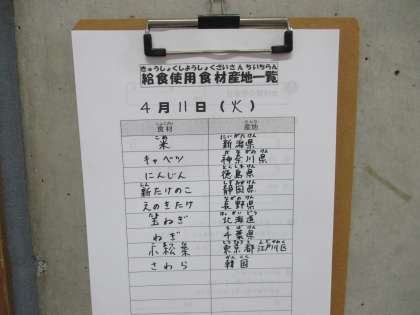 きゅうしょくしようしょくざいさんちいちらん
給食使用食材産地一覧
4月11日(火)
食材 産地
米 新潟県
キャベツ 神奈川県
にんじん 徳島県
新たけのこ 静岡県
えのきたけ 長野県
玉ねぎ 北海道
ねぎ 千葉県
小松菜 東京都江戸川区
さわら 韓国